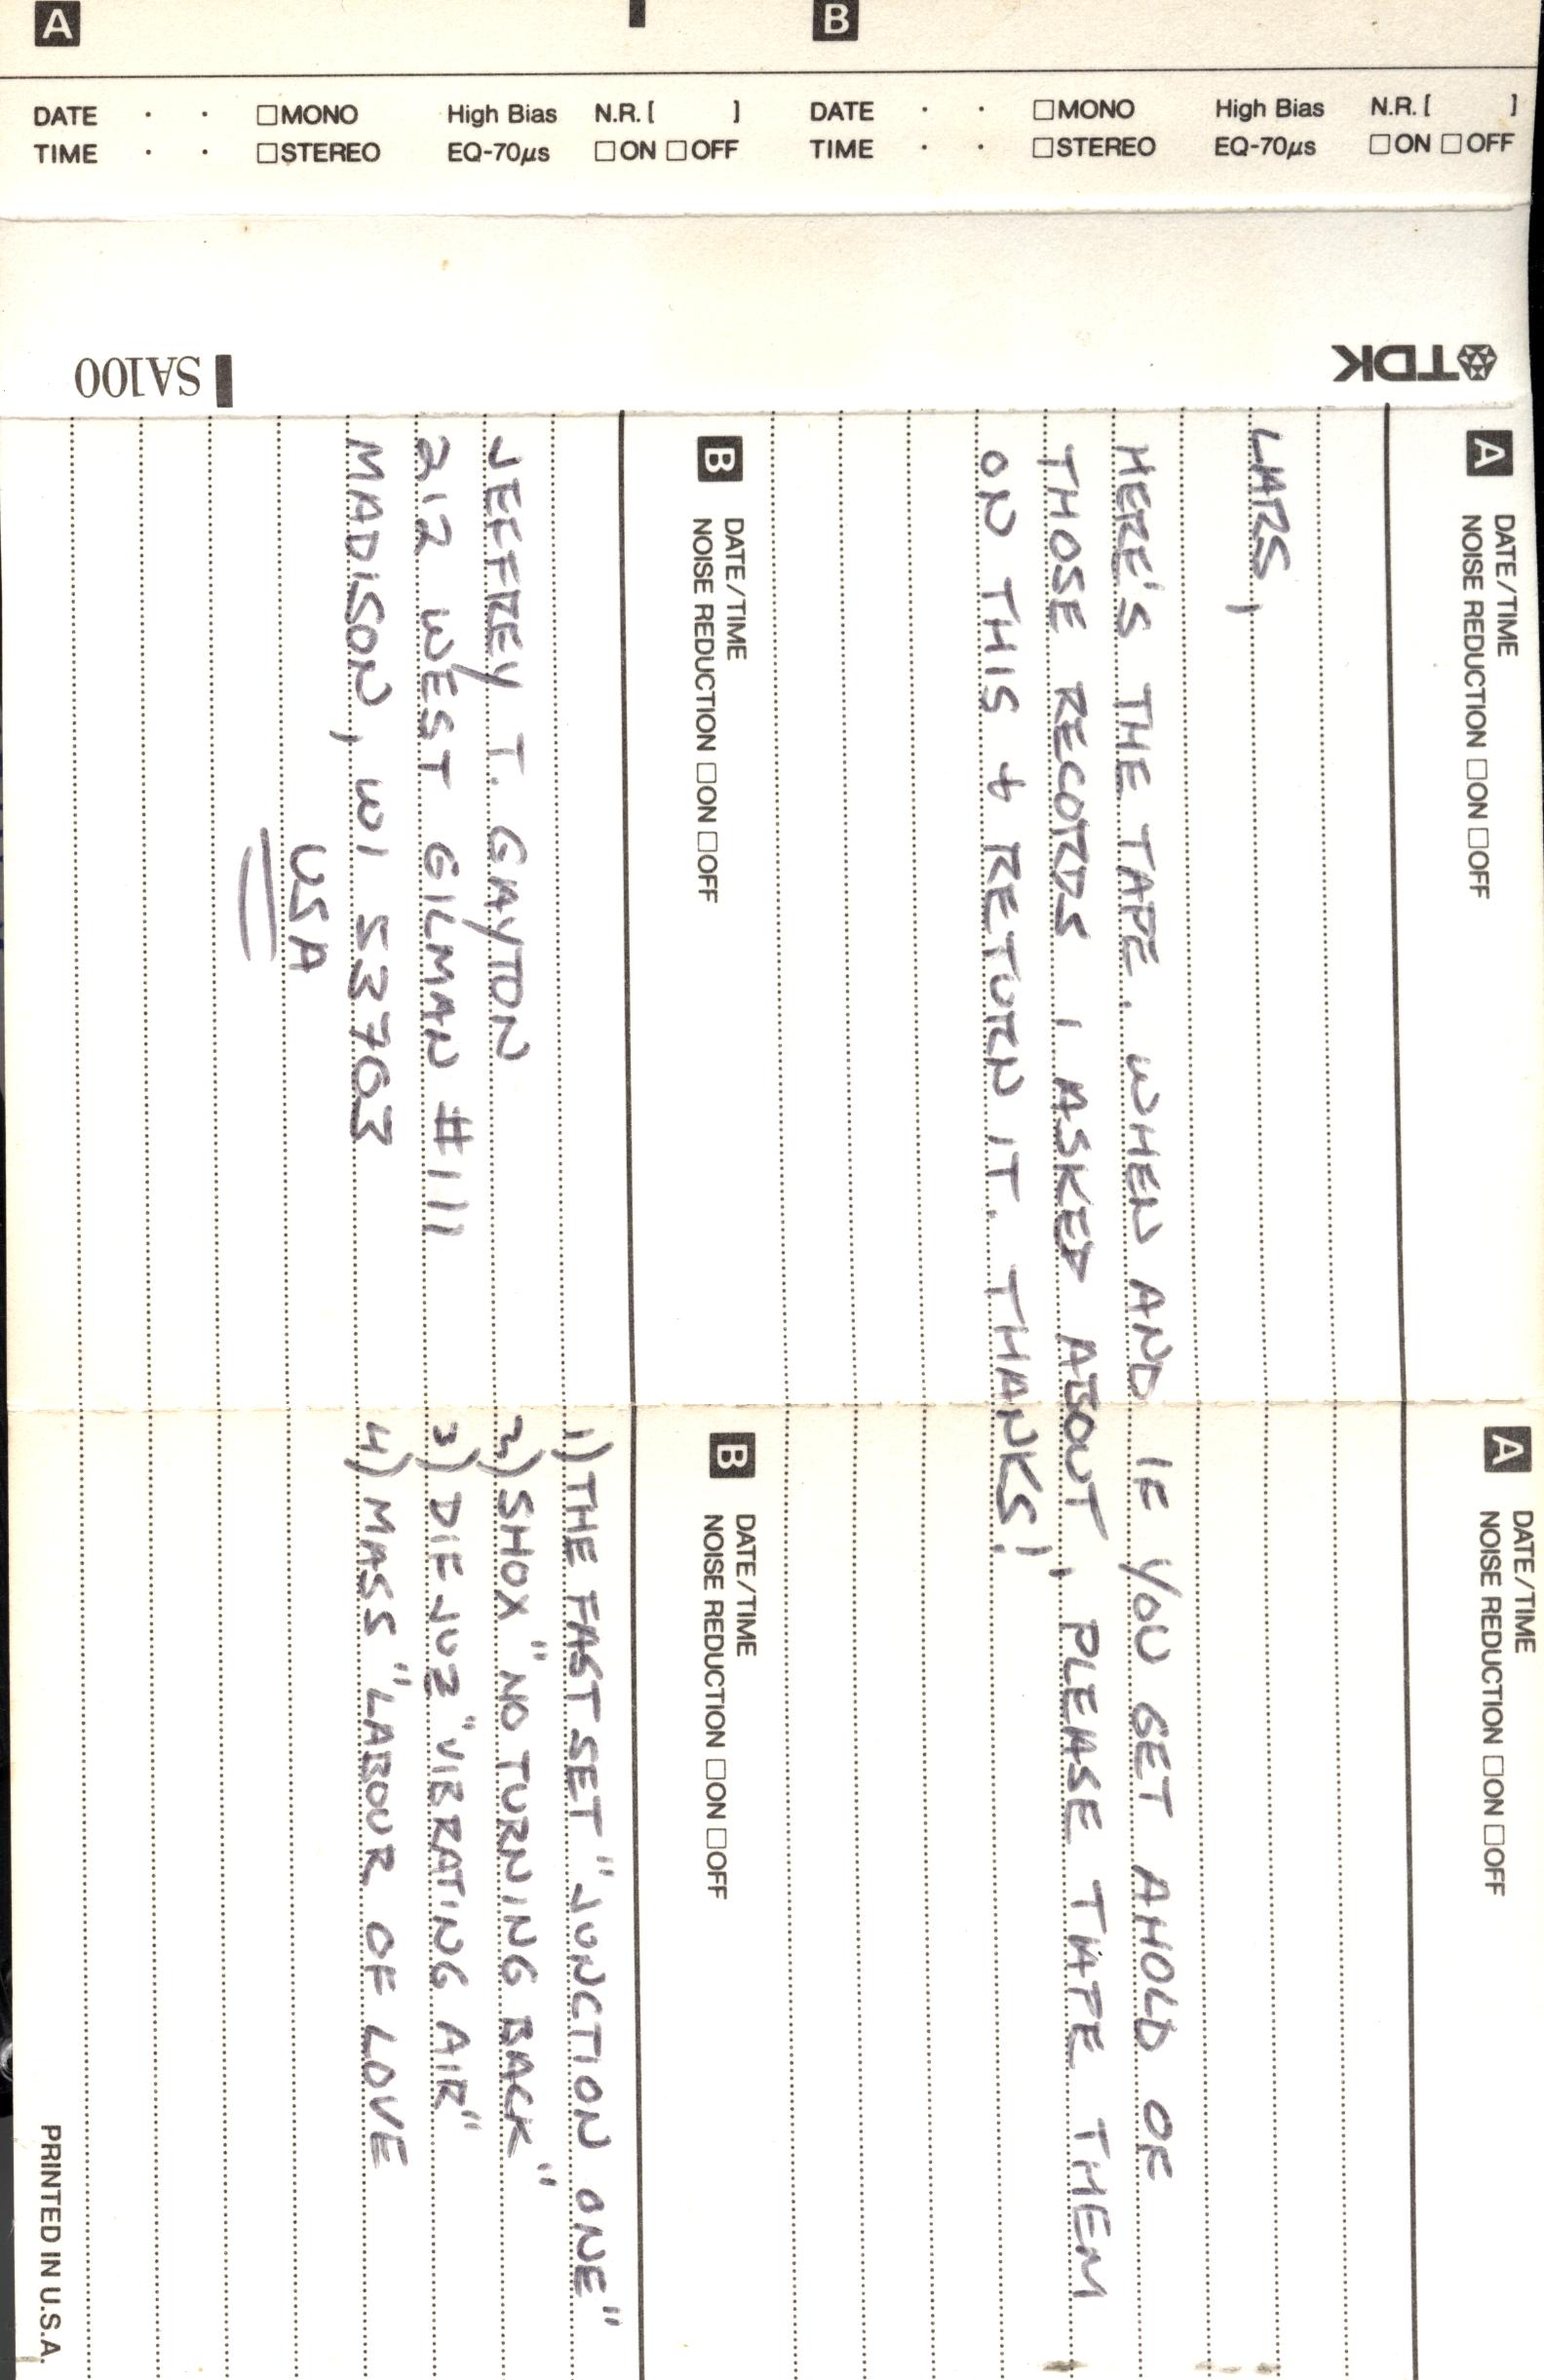 A
B
DATE · · □MONO High Bias N.R. [ ]
TIME · · □STEREO EQ-70µs □ON □OFF
DATE · · □MONO High Bias N.R. [ ]
TIME · · □STEREO EQ-70µs □ON □OFF
TDK
SA100
A DATE/TIME
NOISE REDUCTION □ON □OFF
A DATE/TIME
NOISE REDUCTION □ON □OFF
LARS,
HERE'S THE TAPE. WHEN AND IF YOU GET AHOLD OF
THOSE RECORDS I ASKED ABOUT, PLEASE TAPE THEM
ON THIS + RETURN IT. THANKS!
B DATE/TIME
NOISE REDUCTION □ON □OFF
JEFFREY T. GAYTON
212 WEST GILMAN #111
MADISON, WI 53703
USA
B DATE/TIME
NOISE REDUCTION □ON □OFF
1) THE FAST SET "JUNCTION ONE"
2) SHOX "NO TURNING BACK"
3) DIEJUZ "VIBRATING AIR"
4) MASS "LABOUR OF LOVE
PRINTED IN U.S.A.